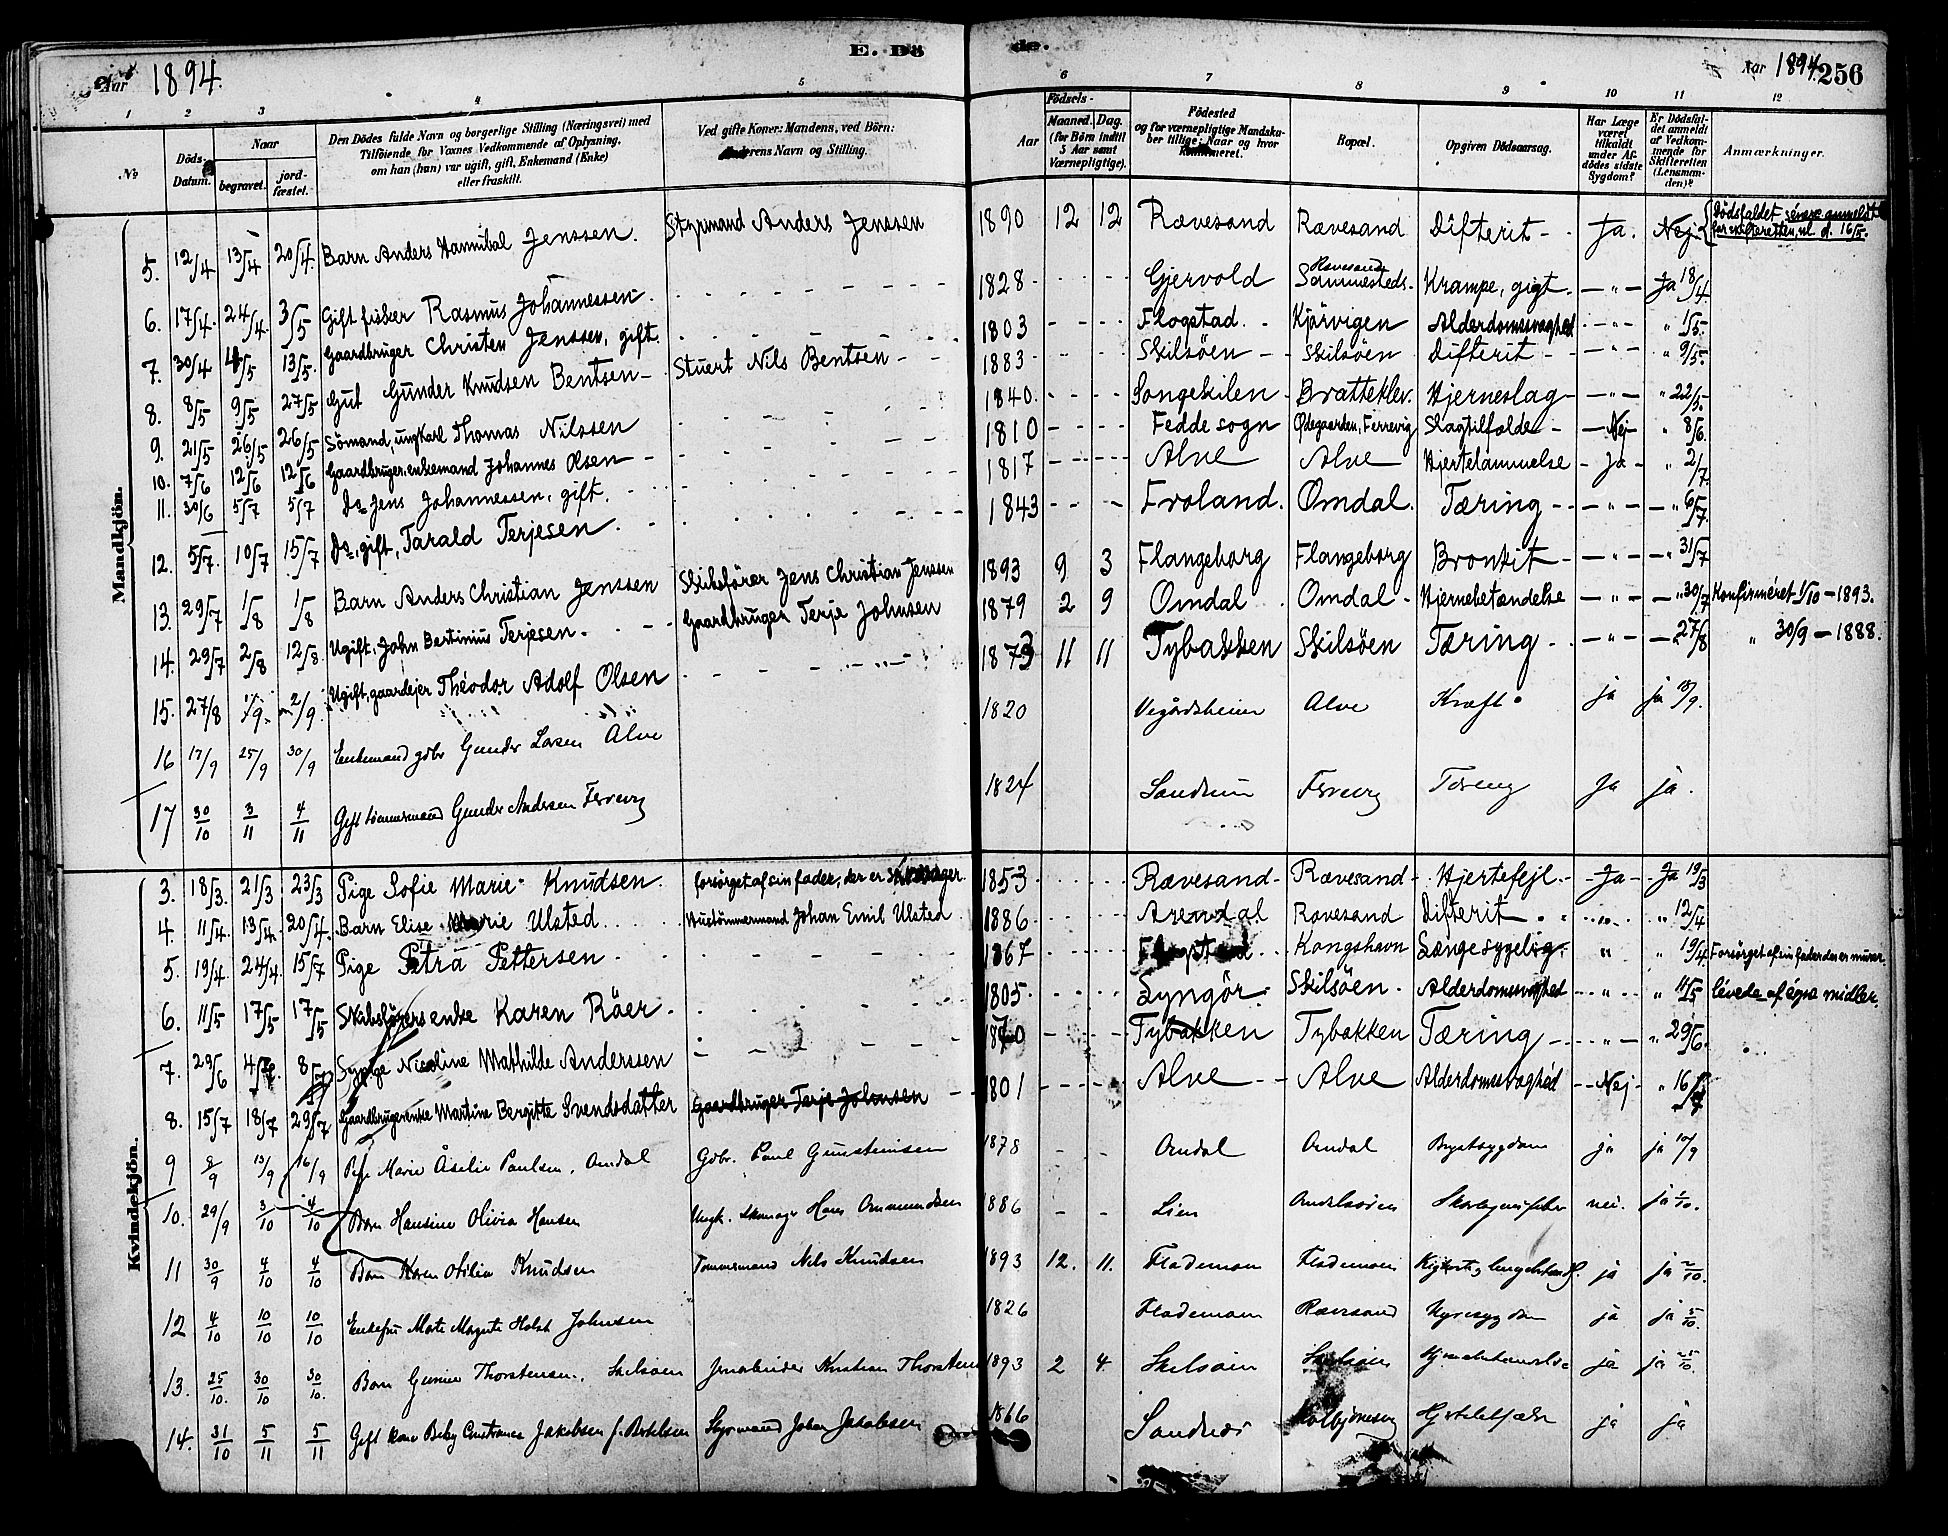 E. Dö
de.
Aar 1894.
Aar 1894. 256
1 2 3 4 5 6 7 8 9 10 11 12
No
Döds-Datum.
Naar
begravet.
jord-fæstet.
Den Dödes fulde Navn og borgerlige Stilling (Næringsvei) med
Tilföiende for Voxnes Vedkommende af Oplysning,
om han (hun) var ugift, gift, Enkemand (Enke)
eller fraskilt.
Ved gifte Koner: Mandens, ved Börn:
Faderens Navn og Stilling.
Födsels-
Aar
Maaned. Dag.
(for Börn indtil
5 Aar samt
Værnepligtige).
Födested
og for værnepligtige Mandska-
ber tillige: Naar og hvor
Bopæl.
Opgiven Dödsaarsag.
Har Læge
været
tilkaldt
under Af-
dödes sidste
Sygdom?
Er Dödsfal-
det anmeldt
af Vedkom-
mende for
Skifteretten
(Lensman-
den)?
Anmærkninger.
Mandkjön.
5. 12/4 13/4 20/4. Barn Anders Hannibal Jenssen. Styrmand Anders Jenssen 1890 12 12 Rævesand Rævesand Difterit - - Ja. Nej. Dödsfaldet senere anmeldt for skifteretten, nl. d. 16/5.
6. 17/4. 24/4. 3/5 Gift fisker Rasmus Johannessen. 1828 Gjervold Rævesand Sammesteds. Krampe, gigt. - " - Ja 18/4
7. 30/4 4/5 13/5. Gaardbruger Christen Jenssen, gift. 1803 Flogstad. Kjörvigen Alderdomssvaghed - " - " 1/5.
8. 8/5 9/5 27/5 Gut Gunder Knudsen Bentsen - Stuert Nils Bentsen - - 1883 Skilsöen - - Skilsöen Difterit - - " - " 9/5.
9. 21/5 26/5 26/5 Sömand, ungkarl Thomas Nilssen 1840. Songekilen Bratteklev. Hjerneslag - - " - " 22/5.
10. 7/6 12/6 12/6 Gaardbruger, enkemand Johannes Olsen - 1810 Fedde sogn Ödegaarden, Ferrevig Slagtilfælde - - Nej - " 8/6.
11. 30/6 5/7 5/7 Do Jens Johannessen, gift. 1817 Alve Alve Hjertelammelse - Ja - " 2/7.
12. 5/7. 10/7 15/7 Do, gift, Tarald Terjesen. 1843 Froland. Omdal. Tæring - - - " - - " 6/7.
13. 29/7 1/8 1/8 Barn Anders Christian Jenssen Skibsförer Jens Christian Jenssen 1893 9 3 Flangeborg Flangeborg Bronkit - - " - - " 31/7
14. 29/7 2/8 12/8. Ugift, John Bertinius Terjesen. Gaardbruger Terje Johnsen 1879 2 9 Omdal Omdal - Hjernebetændelse - " - - " 30/7 Konfirmeret 1/10 - 1893.
15. 27/8 1/9. 2/9. Ugift, gaardejer Théodor Adolf Olsen 1873 11 11 Tybakken Skilsöen Tæring - - " - - " 27/8 " 30/9 - 1888.
16 17/9 25/9 30/9 Enkemand gdbr Gunder Larsen Alve 1820 Vegårdsheien Alve Kræft ja ja 18/9.
17 30/10 3/11 4/11 Gift tömmermand Gunder Andersen Fervevig 1824 Fervevig Tæring Ja ja.
Kvindekjön.
3. 18/3. 21/3 23/3 Pige Sofie Marie Knudsen. forsörget af sin fader, der er 1853 Rævesand - Rævesand - Hjertefejl. - - Ja - Ja 19/3
4. 11/4. 13/4. 20/4. Barn Elise Marie Ulsted. Hustömmermand Johan Emil Ulsted 1886 Arendal Rævesand Difterit - " " 12/4
5. 19/4 24/4. 15/7 Pige Petra Pettersen. 1867 Flogstad Kongshavn Længe sygelig. " " 19/4. Forsörget af sin fader der er murer.
6. 11/5 17/5 17/5 Skibsförers enke Karen Röer. 1805 Lyngör. Skilsöen. Alderdomssvaghed " " 11/5 levede af egne midler
7. 29/6 4/7. 8/7 Sypige Nicoline Mathilde Anderssen 1870 Tybakken Tybakken Tæring - " - " 29/6.
8. 15/7 18/7 29/7 Gaardbrugerenke Martine Bergitte Svendsdatter Gaardbruger Terje Johnsen 1801 Alve - - Alve Alderdomssvaghed - - Nej - " 16/7
9 8/9 13/9 16/9 Pige Marie Åselie Paulsen, Omdal Gdbr. Paul Gunsteinsen 1878 Omdal Omdal Brystsygdom ja ja 10/9
10. 29/9 3/10 4/10 Barn Hansine Olivia Hansen Ungk. Skomager Hans Ommundsen 1886 Lien Skarlagensfeber nei. ja 1/10.
11 30/9 4/10 4/10 Barn Karen Otilia Knudsen Tömmermand Nils Knudsen 1893 12. 11. Flademoen Flademoen ja ja 2/10.
12 4/10 10/10 10/10 Enkefru Marte Margrete Holst Johnsen 1826 Flademoen Rævesand Nyresygdom ja ja 5/10.
13. 25/10. 30/10 30/10. Barn Gunine Thorstensen, Skilsöen Kristian Thorstensen 1893 2 4 Skilsöen Skilsöen ja ja 25/10.
14. 31/10 5/11 5/11 Gift Kone Jakobsen f. Bertelsen Styrmand Johan Jakobsen 1866 Sandnes Kolbjönsvig ja ja